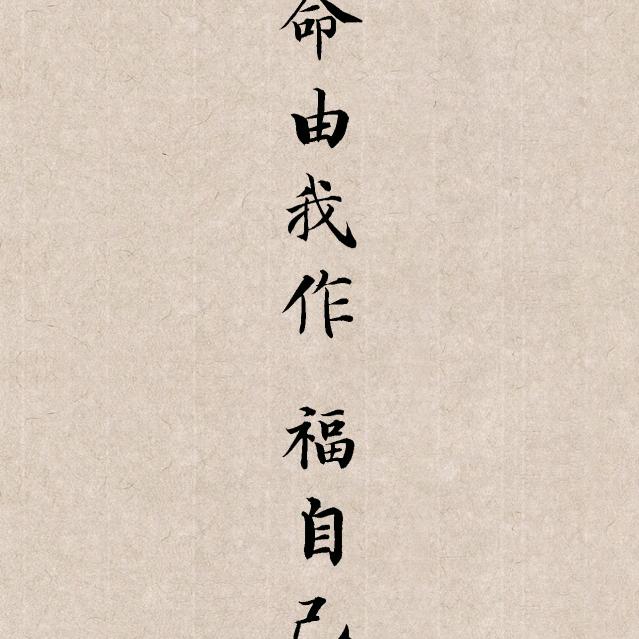 命由我作 福自己